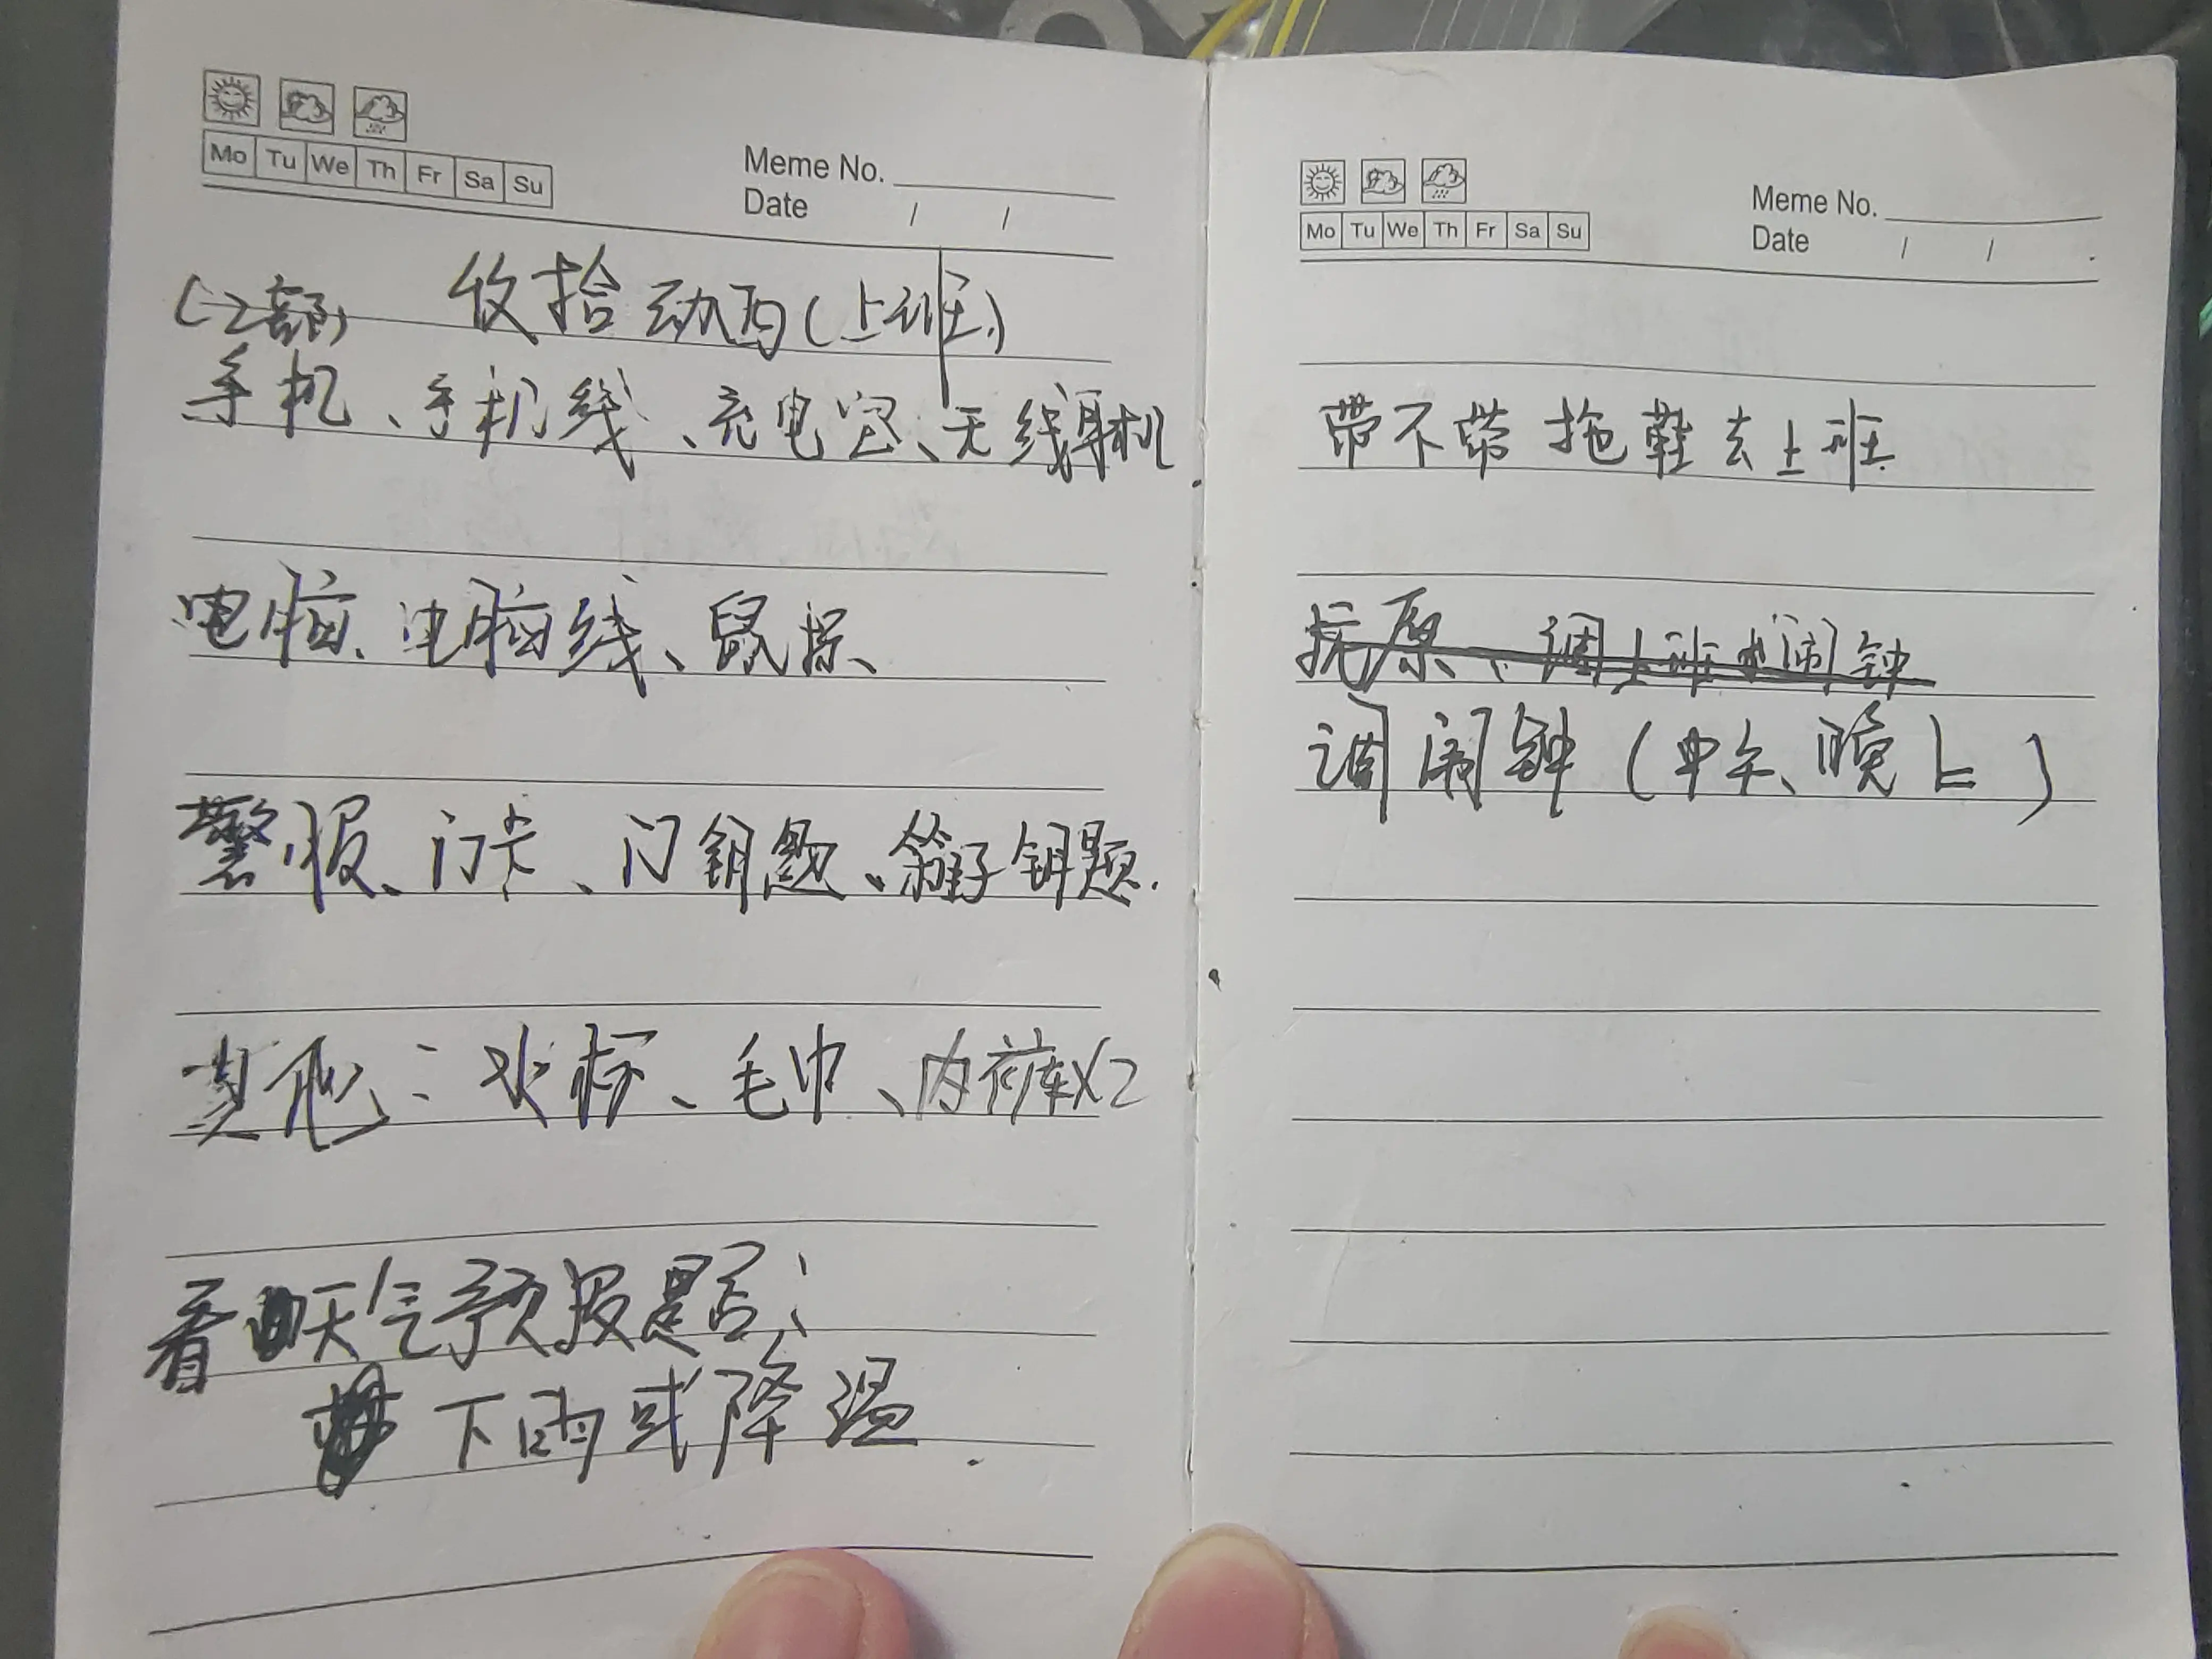 Mo Tu We Th Fr Sa Su
Meme No.
Date / /
收拾动西(上班)
(2部)
手机、手机线、充电宝、无线耳机
电脑、电脑线、鼠标、
警服、门卡、门钥匙、箱子钥匙.
其他:水杯、毛巾、内裤X2
看天气预报是否:
下雨或降温
Mo Tu We Th Fr Sa Su
Meme No.
Date / /
带不带拖鞋去上班
抗原、调上班的闹钟
调闹钟(中午、晚上)